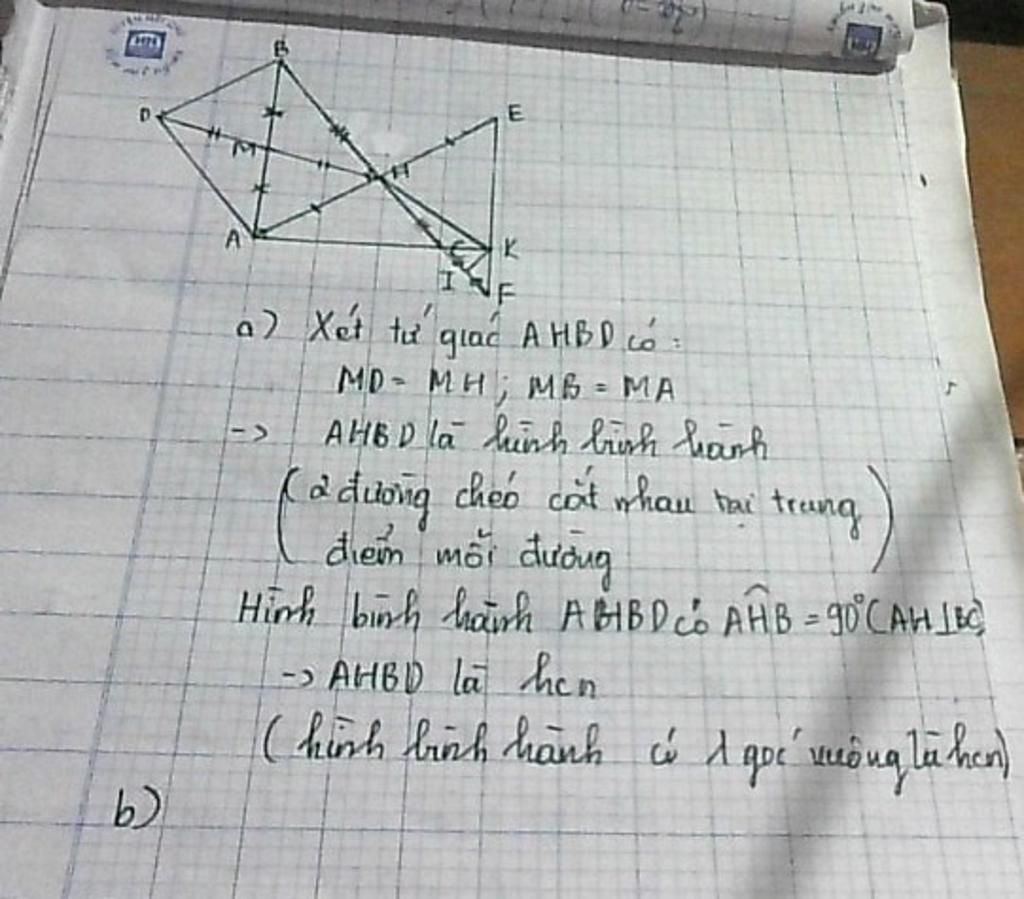 B
D
E
M
H
A
C
K
I
F
a) Xét tứ giác AHBD có:
MD = MH ; MB = MA
-> AHBD là hình bình hành
(2 đường chéo cắt nhau tại trung
điểm mỗi đường)
Hình bình hành AHBD có AHB = 90° (AH⊥BC)
-> AHBD là hcn
(hình bình hành có 1 góc vuông là hcn)
b)